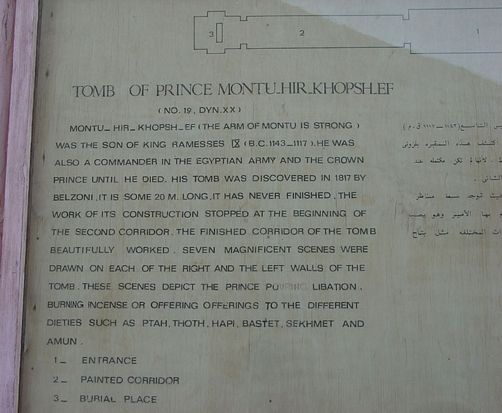 3
2
1
TOMB OF PRINCE MONTU_HIR_KHOPSH_EF
(NO. 19, DYN.XX)
MONTU_ HIR_ KHOPSH_ EF (THE ARM OF MONTU IS STRONG)
WAS THE SON OF KING RAMESSES IX (B.C. 1143_1117). HE WAS
ALSO A COMMANDER IN THE EGYPTIAN ARMY AND THE CROWN
PRINCE UNTIL HE DIED. HIS TOMB WAS DISCOVERED IN 1817 BY
BELZONI, IT IS SOME 20 M. LONG, IT HAS NEVER FINISHED, THE
WORK OF ITS CONSTRUCTION STOPPED AT THE BEGINNING OF
THE SECOND CORRIDOR. THE FINISHED CORRIDOR OF THE TOMB
BEAUTIFULLY WORKED. SEVEN MAGNIFICENT SCENES WERE
DRAWN ON EACH OF THE RIGHT AND THE LEFT WALLS OF THE
TOMB. THESE SCENES DEPICT THE PRINCE POURING LIBATION,
BURNING INCENSE OR OFFERING OFFERINGS TO THE DIFFERENT
DIETIES SUCH AS PTAH, THOTH, HAPI, BASTET, SEKHMET AND
AMUN.
1_ ENTRANCE
2_ PAINTED CORRIDOR
3_ BURIAL PLACE